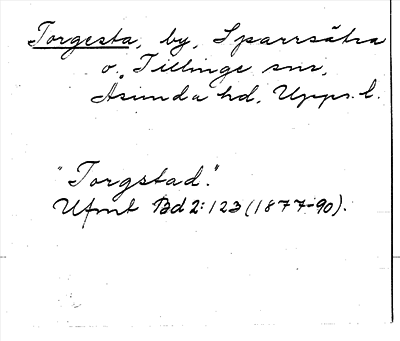 Torgesta, by, Sparrsätra
o. Tillinge snr,
Åsunda hd, Upps. l.
"Torgstad."
Ufmt Bd 2: 123 (1877-90).